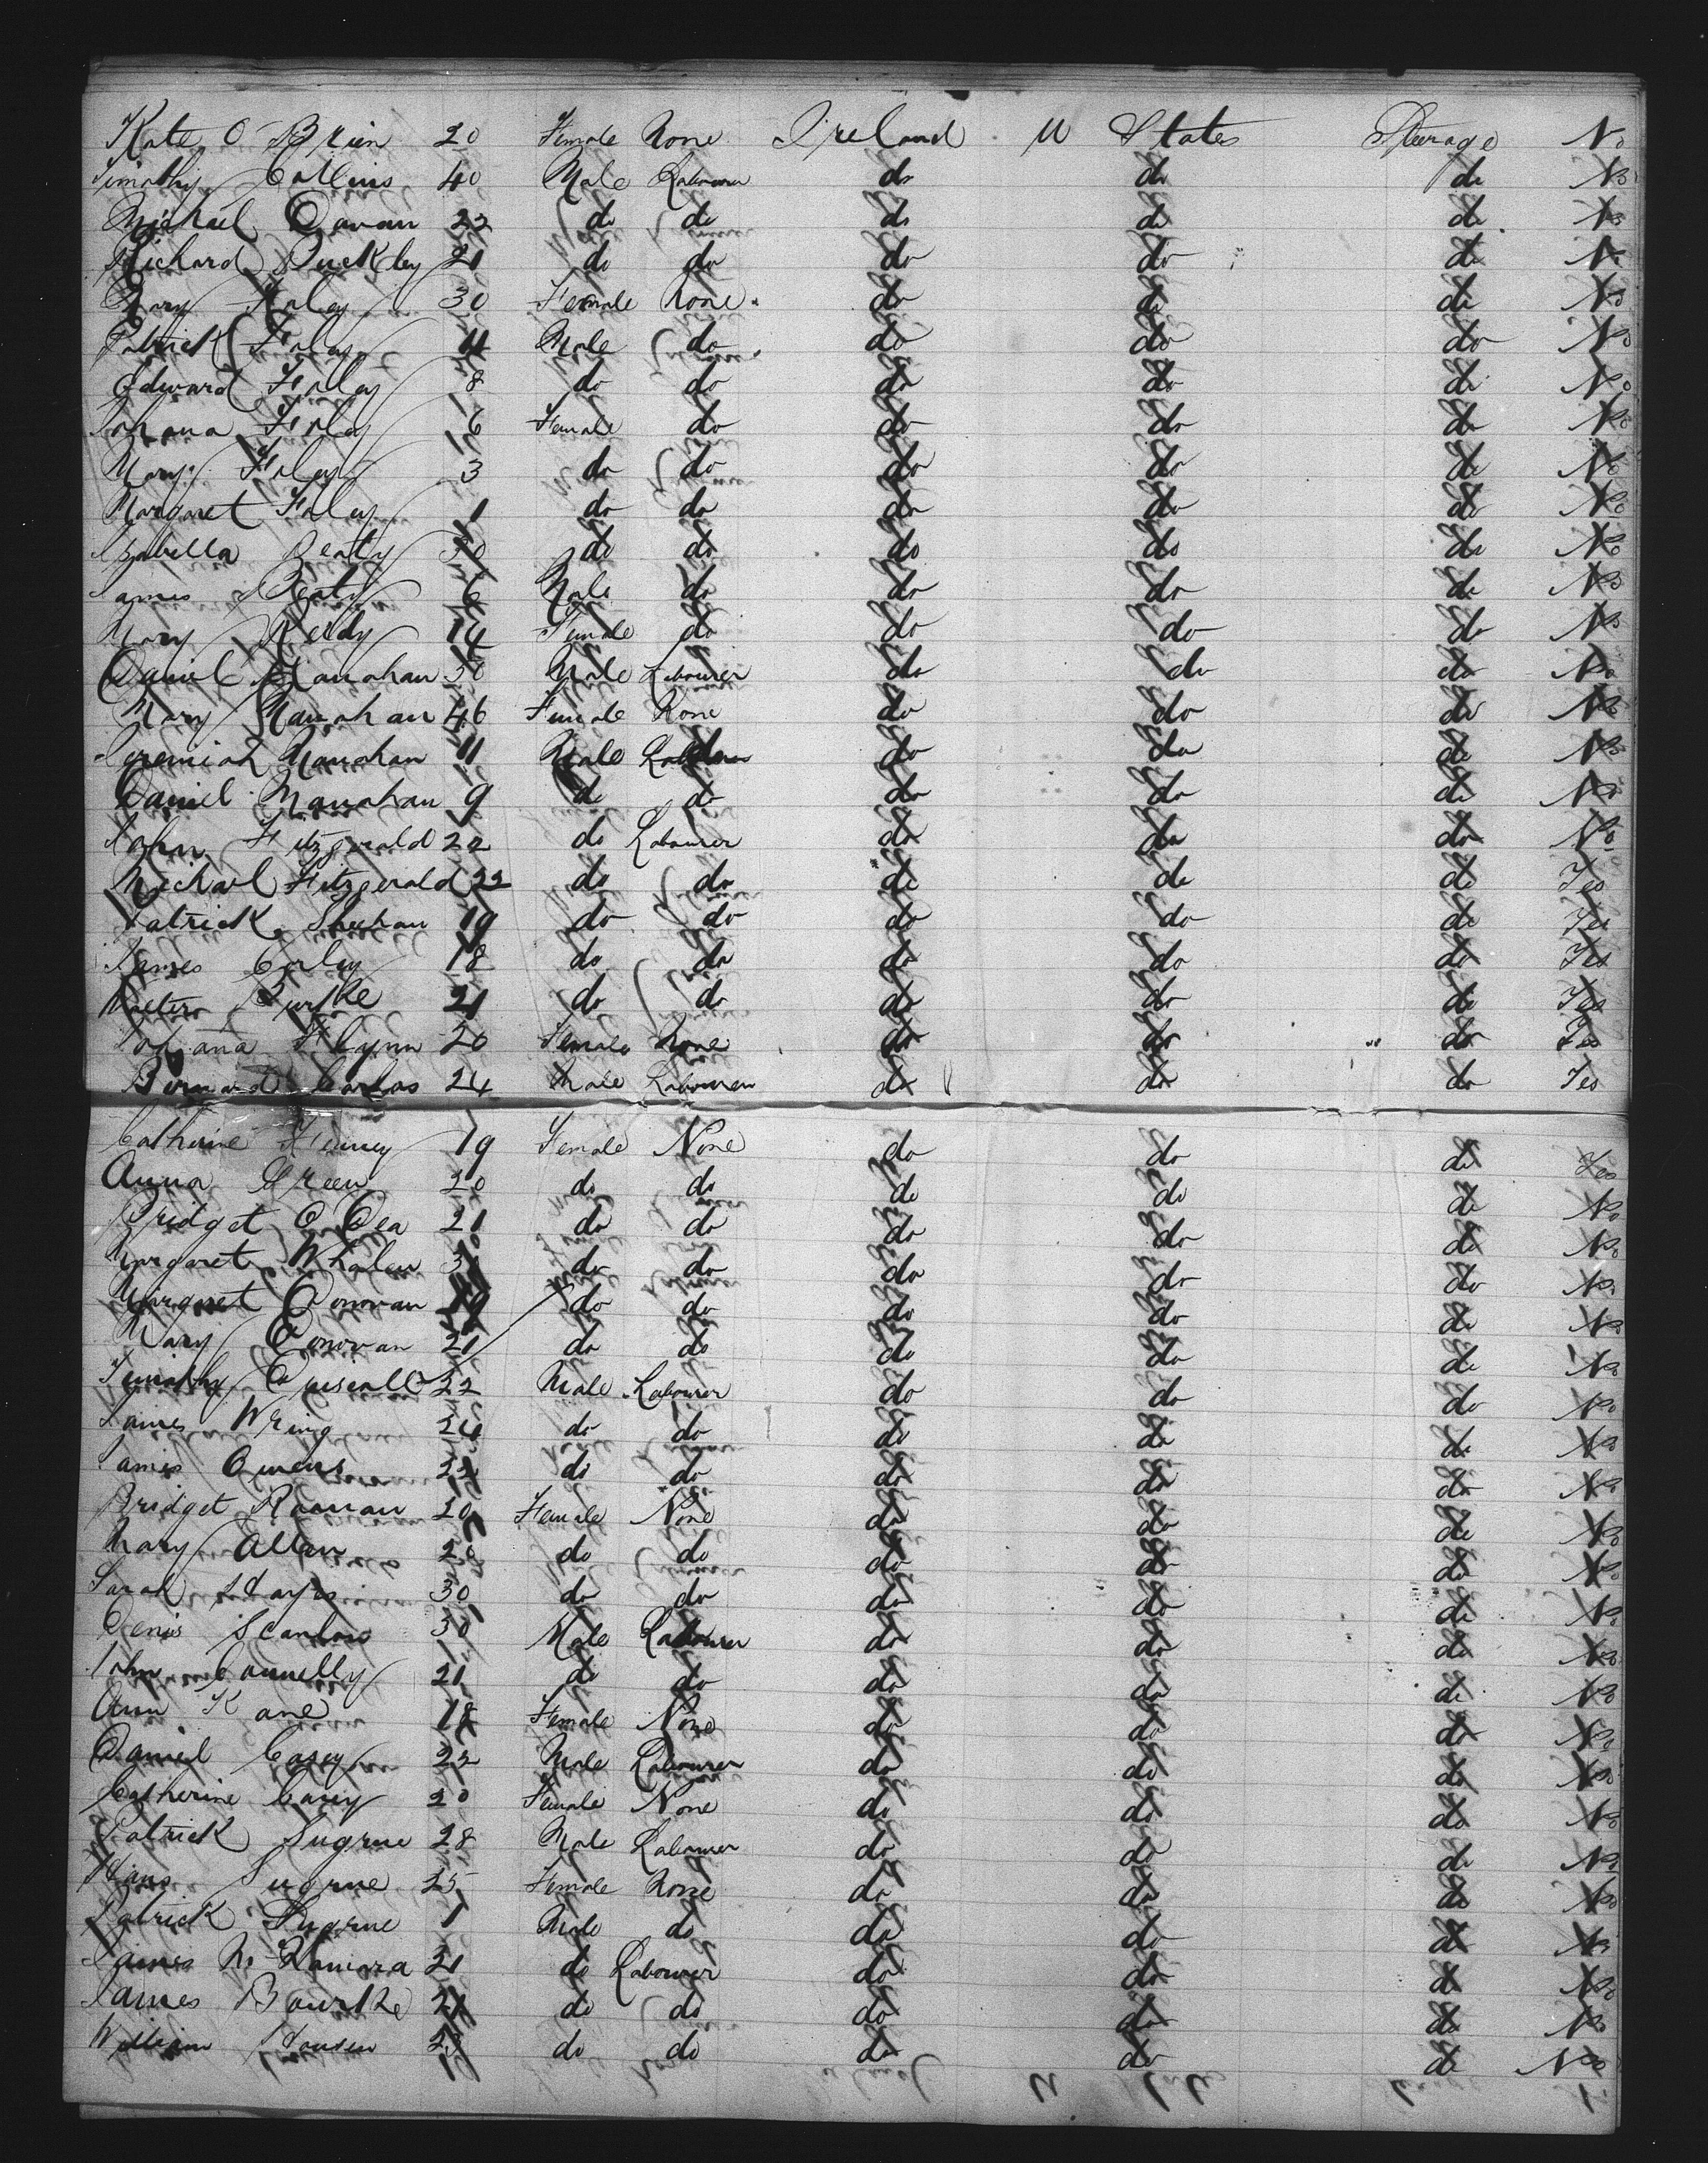 Kate O Brien 20 Female None Ireland U States Steerage No
Timothy Collins 40 Male Labourer do do do No
Michael Donan 22 do do do do do No
Richard Buckley 21 do do do do do No
Mary Foley 30 Female None do do do No
Patrick Foley 11 Male do do do do No
Edward Foley 8 do do do do do No
Johana Foley 6 Female do do do do No
Mary Foley 3 do do do do do No
Margaret Foley 1 do do do do do No
Isabella Beaty 30 do do do do do No
James Beaty 6 Male do do do do No
Mary Reidy 14 Female do do do do No
Daniel Manahan 50 Male Labourer do do do No
Mary Manahan 46 Female None do do do No
Jeremiah Manahan 11 Male do do do No
Daniel Manahan 9 do do do do do No
John Fitzgerald 22 do Labourer do do do No
Michael Fitzgerald 22 do do do do do Yes
Patrick Sheehan 19 do do do do do Yes
James Corley 18 do do do do do Yes
Walter Burke 21 do do do do do Yes
Johana Flynn 20 Female None do do do Yes
Bernard Carlos 24 Male Labourer do do do Yes
Catherine Feeney 19 Female None do do do Yes
Anna Green 20 do do do do do No
Bridget O Dea 21 do do do do do No
Margaret Whalen 31 do do do do do No
Margaret Donovan 19 do do do do do No
Mary Donovan 21 do do do do do No
Timothy Driscoll 22 Male Labourer do do do No
James Wring 24 do do do do do No
James Owens 22 do do do do do No
Bridget Roonan 20 Female None do do do No
Mary Allen 20 do do do do do No
Sarah Hayes 30 do do do do do No
Denis Scanlon 30 Male Labourer do do do No
John Connelly 21 do do do do do No
Ann Kane 18 Female None do do do No
Daniel Casey 22 Male Labourer do do do No
Catherine Carey 20 Female None do do do No
Patrick Sugrue 28 Male Labourer do do do No
Sugrue 25 Female None do do do No
Patrick Sugrue 1 Male do do do do No
James McNamara 21 do Labourer do do do No
James Bourke 21 do do do do do No
William Hansen 23 do do do do do No